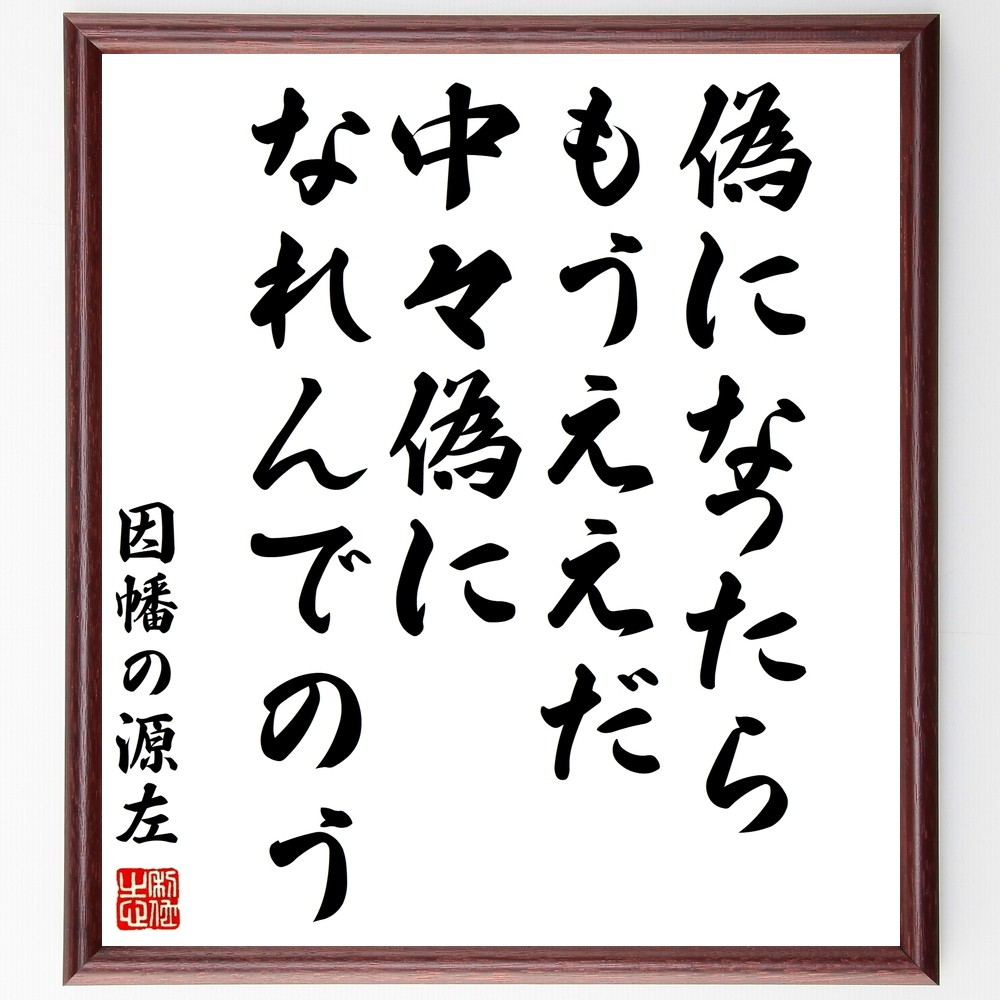 偽になったら
もうええだ
中々偽に
なれんでのう
因幡の源左